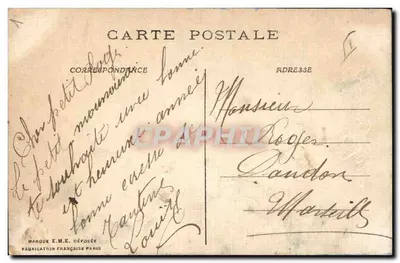 CARTE POSTALE
CORRESPONDANCE
ADRESSE
Cher petit Roger
te souhaite une bonne
et heureuse année
bonne caresse de
Tantine
Louise
Monsieur
Roger
Daudon
Marseille
CPA
MARQUE E.M.E. DÉPOSÉE
FABRICATION FRANÇAISE PARIS